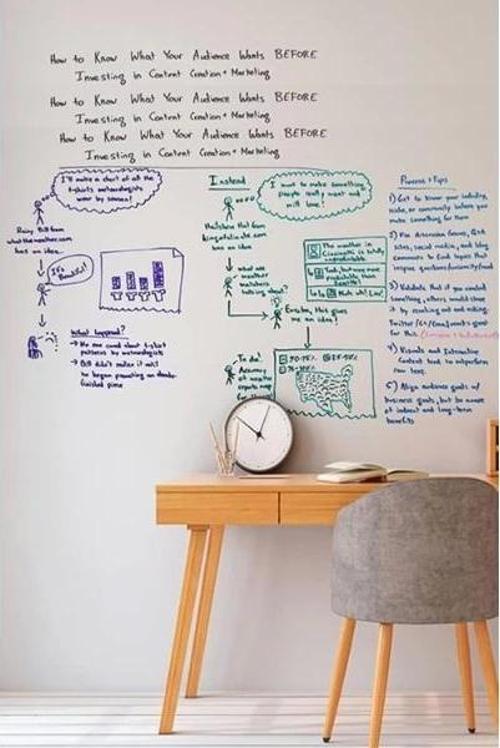 How to Know What Your Audience Wants BEFORE
Investing in Content Creation + Marketing
How to Know What Your Audience Wants BEFORE
Investing in Content Creation + Marketing
How to Know What Your Audience Wants BEFORE
Investing in Content Creation + Marketing
I'll make a chart of all the
t-shirts meteorologists
wear by season!
Rainy Bill from
whatthewather.com
has an idea...
It's
Beautiful!
What happened?
→ No one cared about t-shirt
patterns by meteorologists
→ Bill didn't make it until
he began
Instead
I want to make something
people really want and
will love!
Hailstone Hal from
has an idea
what are
weather
watchers
talking about?
The weather in
Cincinnati is totally
unpredictable
Yeah, but way more
than
Seattle!
Eureka, this gives
me an idea!
To do:
Accuracy
of weather
reports
Process + Tips
1) Get to know your industry,
niche, or community before you
make something for them
2) Use discussion forums, Q+A
sites, social media, and blog
comments to find topics that
inspire questions/curiosity/need
3) Validate that if you created
something, others would share
it by reaching out and asking.
Twitter/G+/Email works great
for this
4) Visuals and Interactive
Content tend to outperform
raw text.
5) Align audience goals w/
business goals, but be aware
of indirect and long-term
benefits